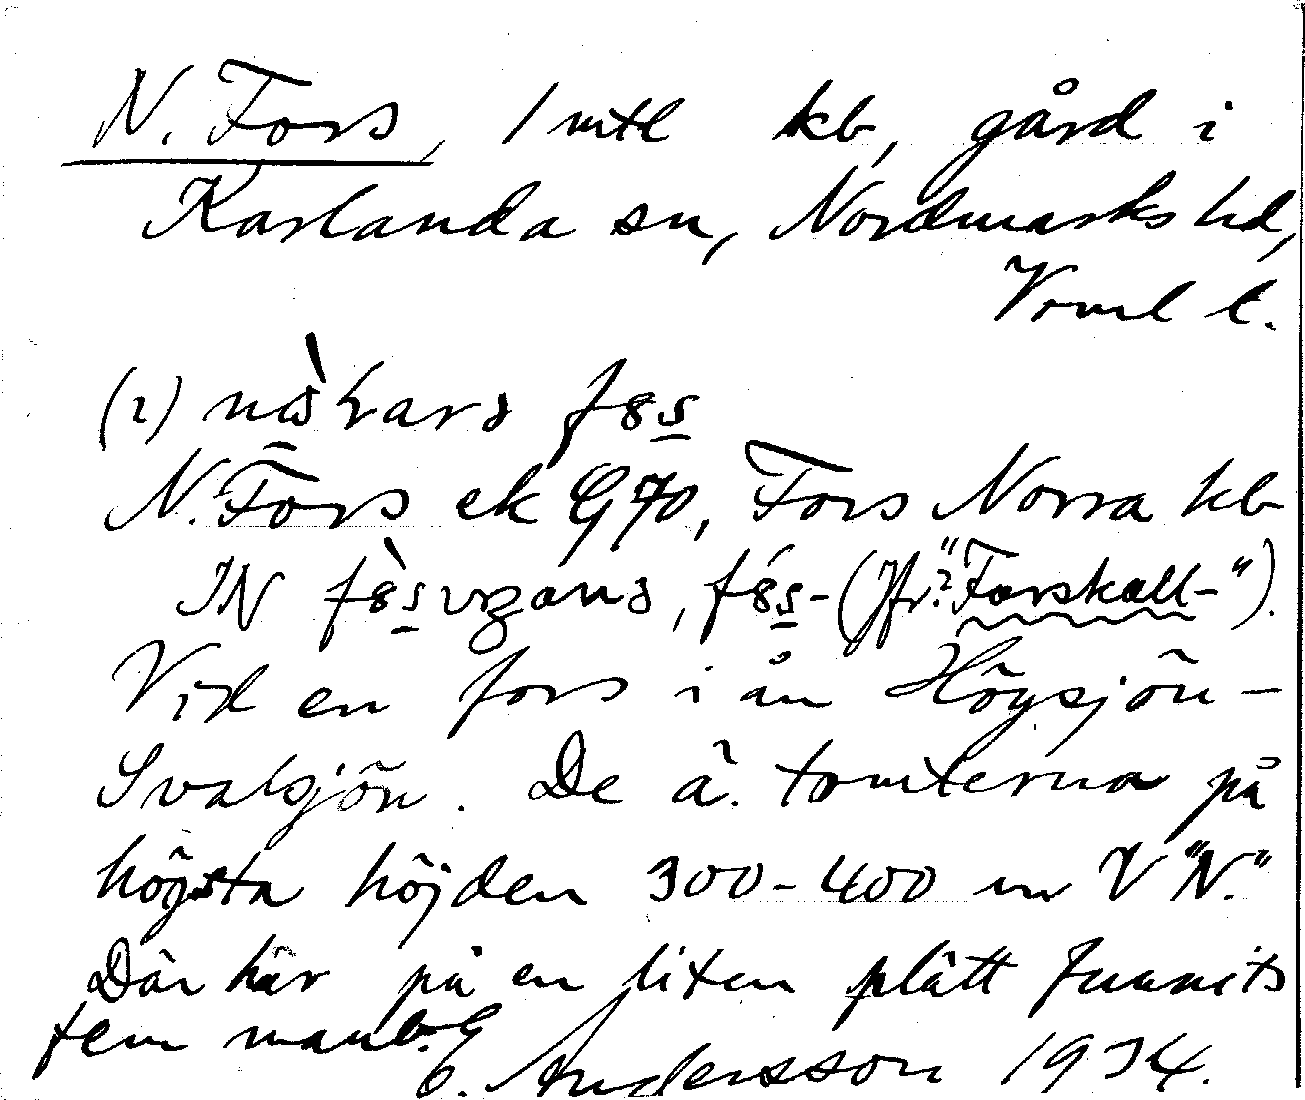 N. Fors, 1 mtl kb, gård i
Karlanda sn, Nordmarks hd,
Vrml l.
(2)
N. Fors ek G 70, Fors Norra kb
IN (Jfr? "Forskall-").
Vid en fors i ån Högsjön-
Svalsjön. De ä. tomterna på
högsta höjden 300-400 m V "N."
Där har på en liten plätt funnits
fem manb.
G. Andersson 1934.